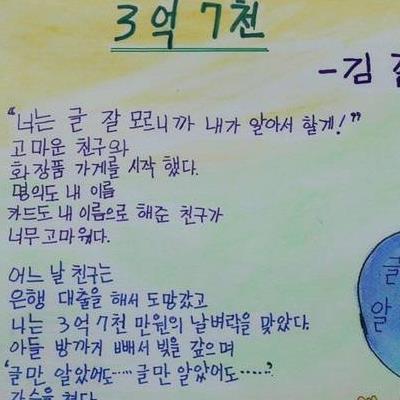 3억 7천
-김
"너는 글 잘 모르니까 내가 알아서 할게!"
고마운 친구와
화장품 가게를 시작 했다.
명의도 내 이름
카드도 내 이름으로 해준 친구가
너무 고마웠다.
어느 날 친구는
은행 대출을 해서 도망갔고
나는 3억 7천 만원의 날벼락을 맞았다.
아들 방까지 빼서 빚을 갚으며
'글만 알았어도····· 글만 알았어도·····?'
가슴을 쳤다
글
알